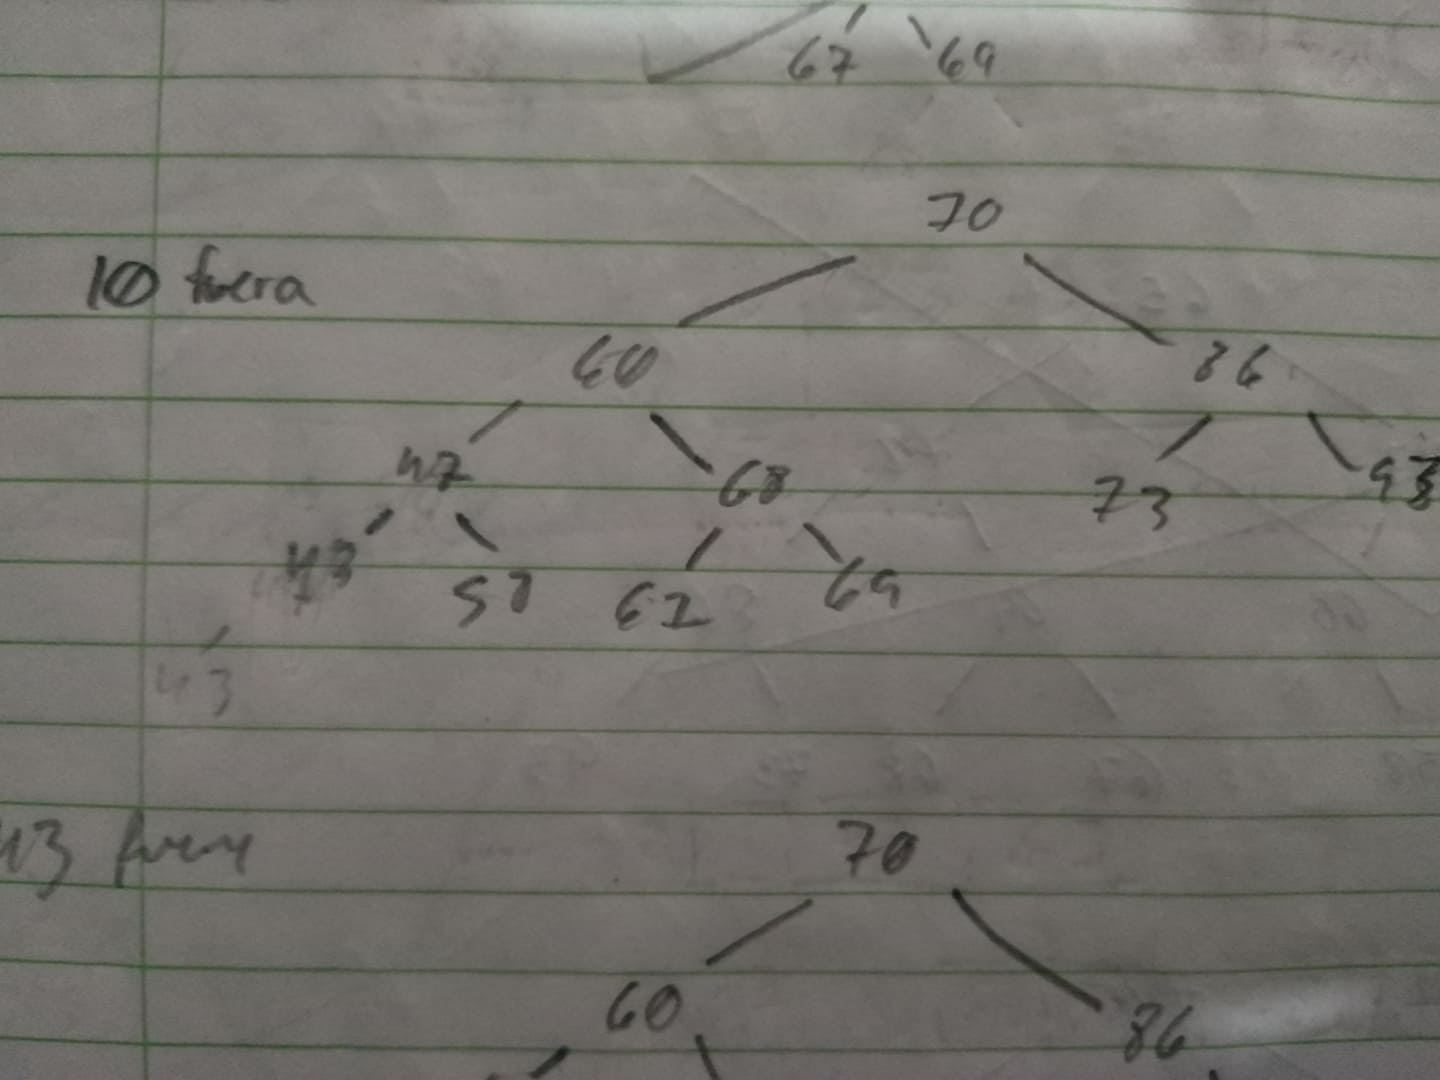 67 69
70
10 fuera
60 86
47 68 73 93
43 57 67 69
43
43 fuera 70
60 86